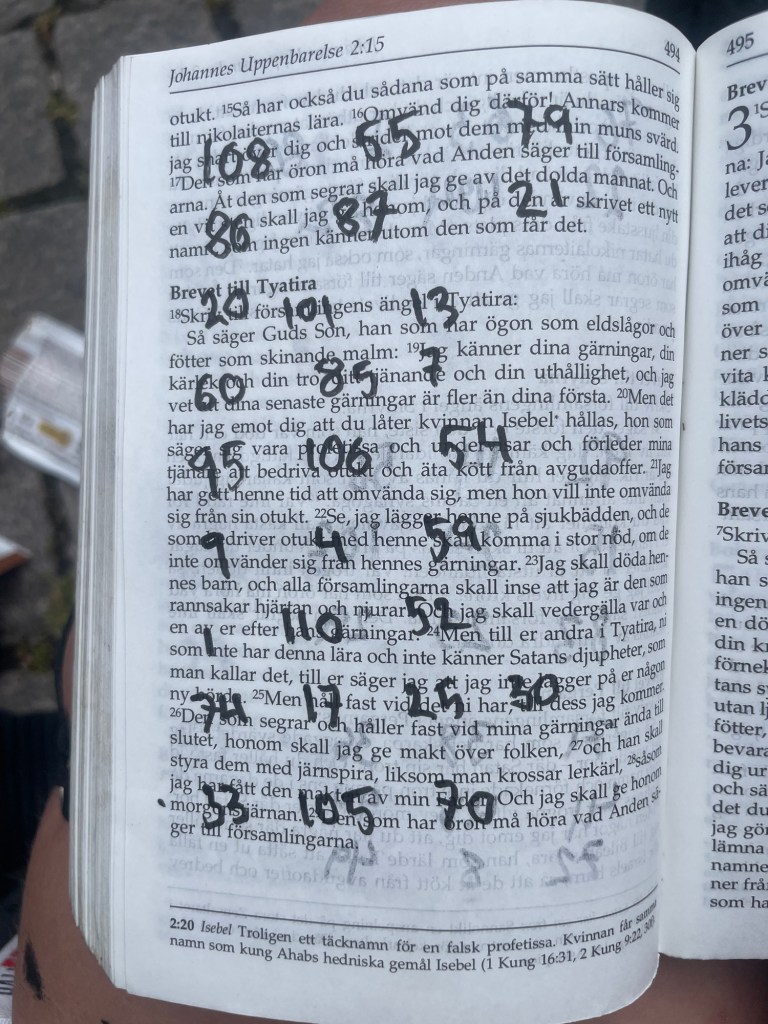 Johannes Uppenbarelse 2:15
494
otukt. 15Så har också du sådana som på samma sätt håller sig
till nikolaiternas lära. 16Omvänd dig därför! Annars kommer
jag snart över dig och strider mot dem med min muns svärd.
108 55 79
17Den som har öron må höra vad Anden säger till församling-
arna. Åt den som segrar skall jag ge av det dolda mannat. Och
en vit sten skall jag ge honom, och på den är skrivet ett nytt
86 87 21
namn som ingen känner utom den som får det.
Brevet till Tyatira
18Skriv till församlingens ängel i Tyatira:
20 101 13
Så säger Guds Son, han som har ögon som eldslågor och
fötter som skinande malm: 19Jag känner dina gärningar, din
kärlek och din tro, ditt tjänande och din uthållighet, och jag
60 85 7
vet att dina senaste gärningar är fler än dina första. 20Men det
har jag emot dig att du låter kvinnan Isebel* hållas, hon som
säger sig vara profetissa och undervisar och förleder mina
95 106 54
tjänare att bedriva otukt och äta kött från avgudaoffer. 21Jag
har gett henne tid att omvända sig, men hon vill inte omvända
sig från sin otukt. 22Se, jag lägger henne på sjukbädden, och de
som bedriver otukt med henne skall komma i stor nöd, om de
9 4 59
inte omvänder sig från hennes gärningar. 23Jag skall döda hen-
nes barn, och alla församlingarna skall inse att jag är den som
rannsakar hjärtan och njurar. Och jag skall vedergälla var och
1 110 52
en av er efter hans gärningar. 24Men till er andra i Tyatira, ni
som inte har denna lära och inte känner Satans djupheter, som
man kallar det, till er säger jag att jag inte lägger på er någon
ny börda. 25Men håll fast vid det ni har, till dess jag kommer.
74 17 25 30
26Den som segrar och håller fast vid mina gärningar ända till
slutet, honom skall jag ge makt över folken, 27och han skall
styra dem med järnspira, liksom man krossar lerkärl, 28såsom
jag har fått den makten av min Fader. Och jag skall ge honom
33 105 70
morgonstjärnan. 29Den som har öron må höra vad Anden sä-
ger till församlingarna.
2:20 Isebel Troligen ett täcknamn för en falsk profetissa. Kvinnan får samma
namn som kung Ahabs hedniska gemål Isebel (1 Kung 16:31, 2 Kung 9:22, 30)
495
Brev
3
na: Ja
lever
det s
att di
ihåg
omvä
som
över
ner s
vita k
klädd
livets
hans
försar
Breve
7Skriv
Så s
han s
ingen
en dö
din kr
förnek
tans sy
utan lj
fötter,
bevara
dig ur
och sä
det du
jag gör
lämna
namne
ner frå
som ha